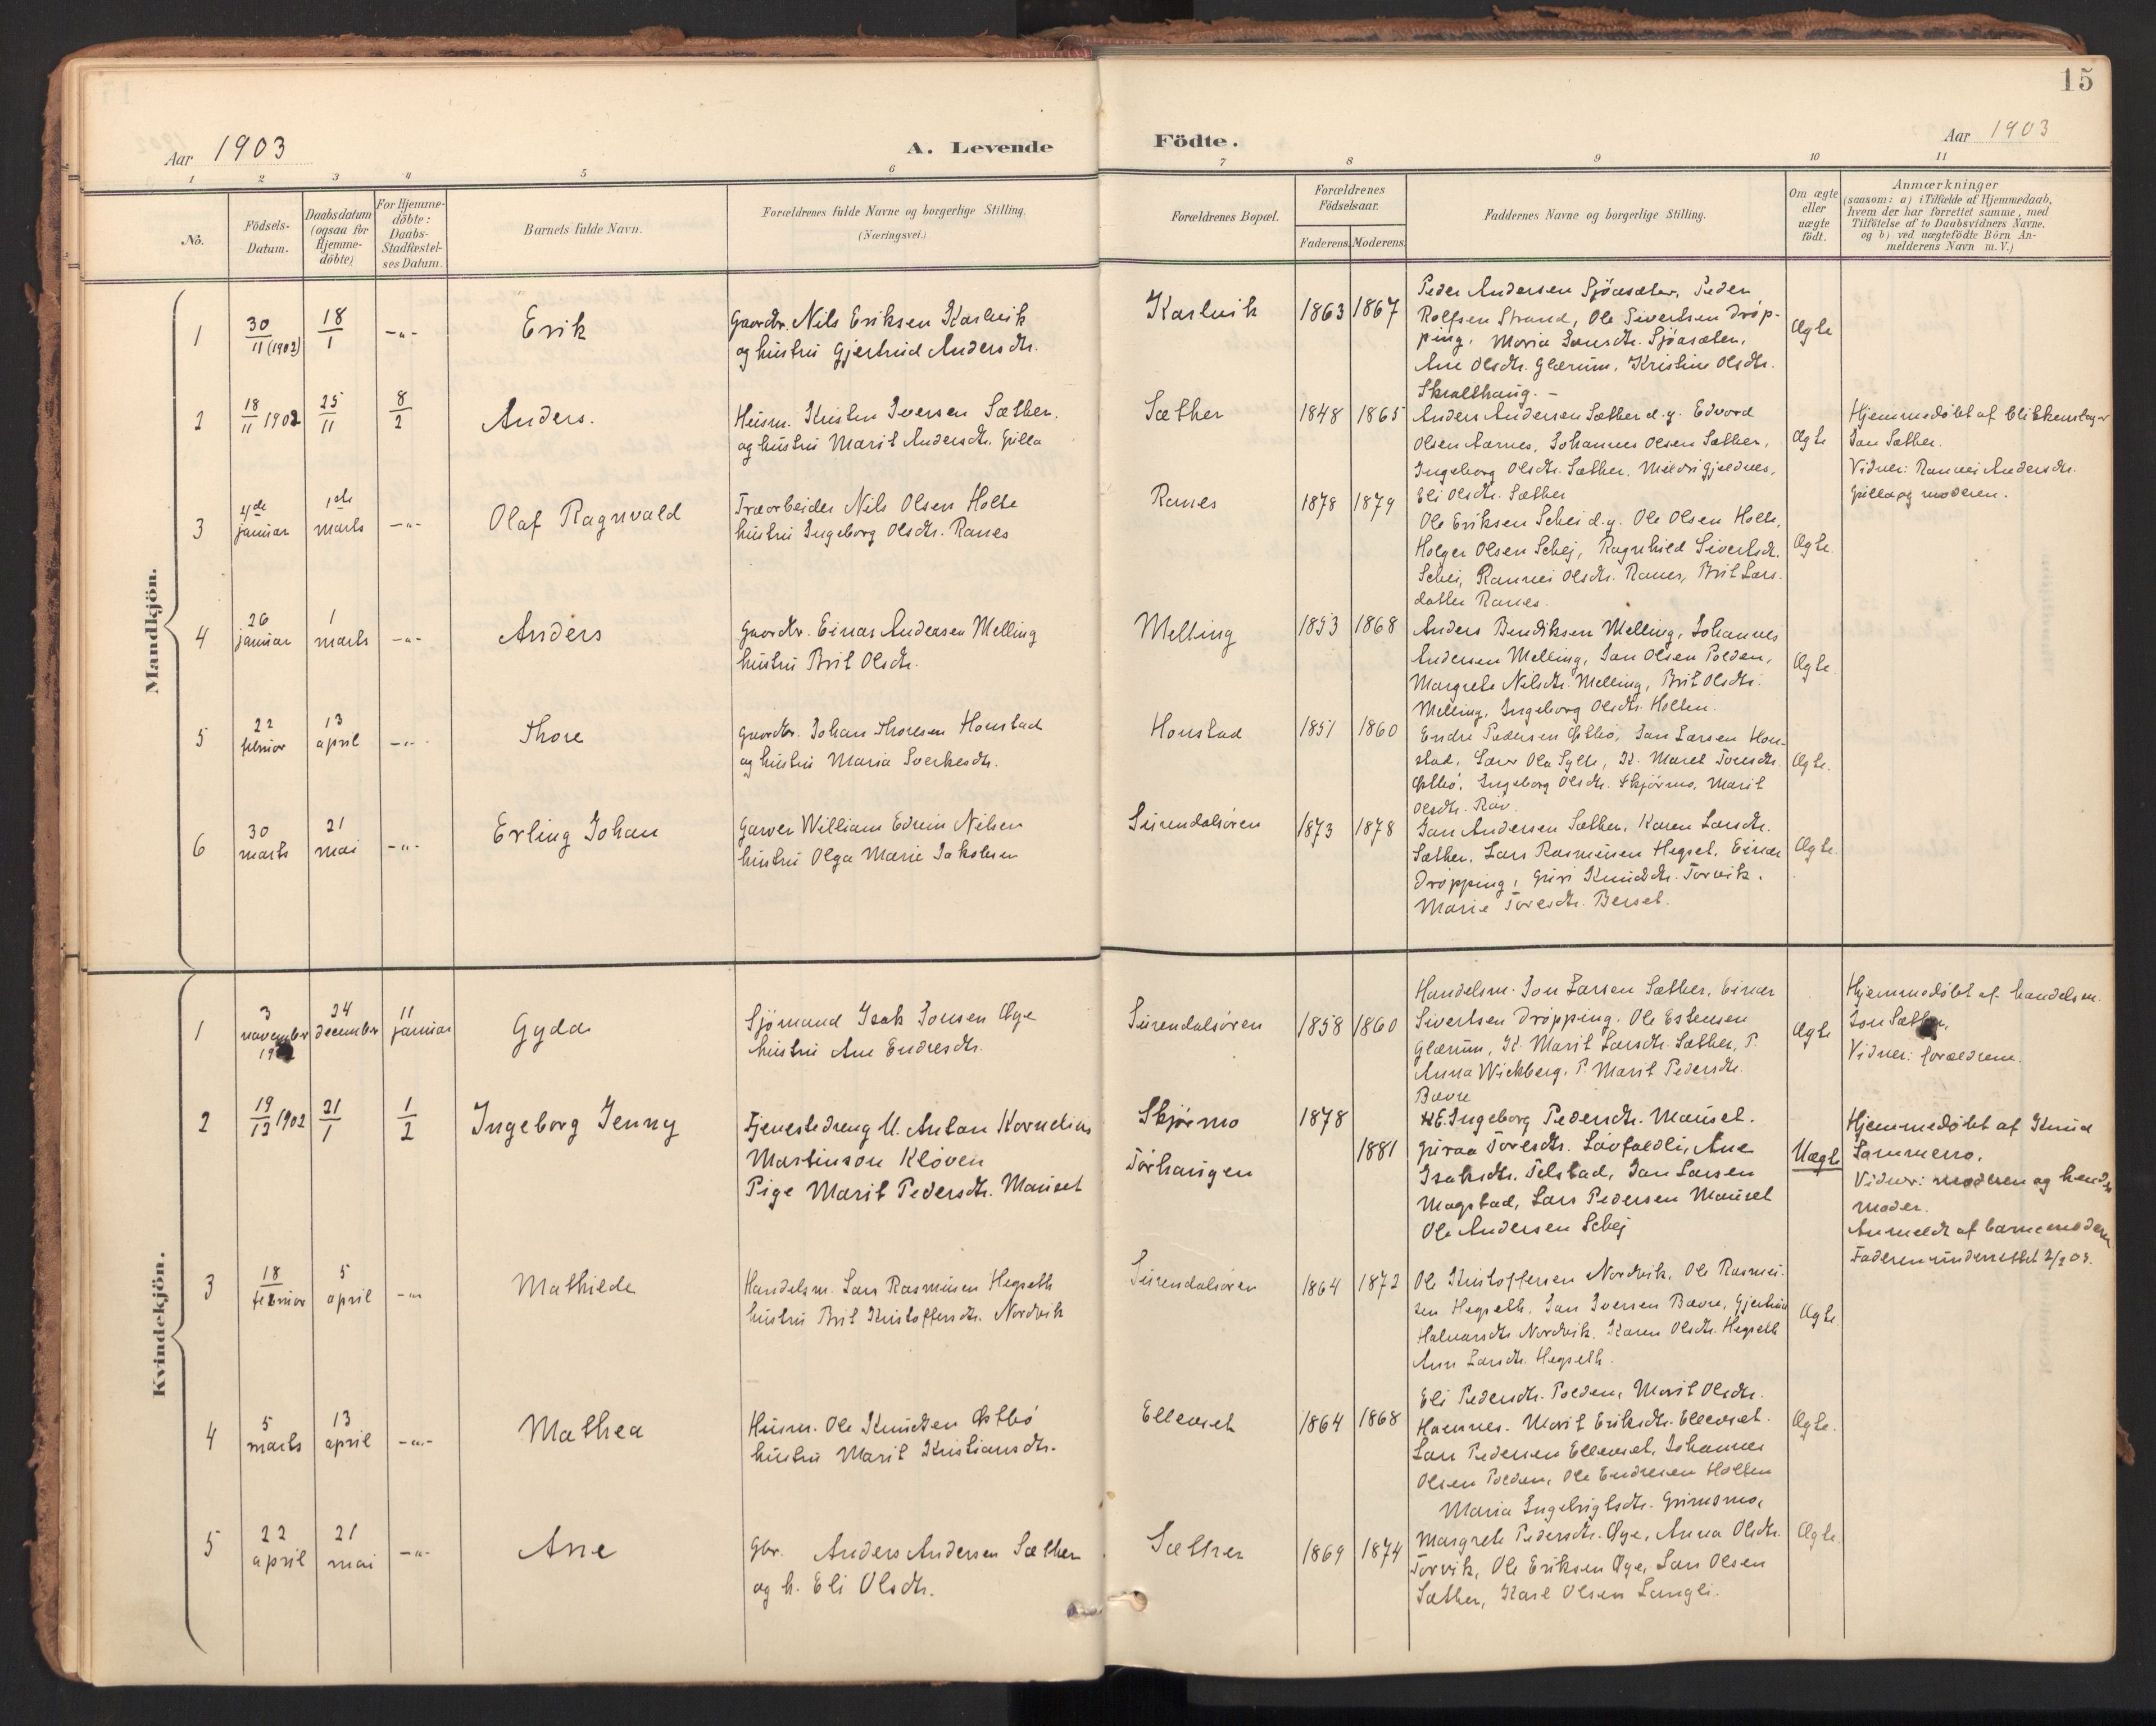 15
Aar 1903
A. Levende
Födte.
Aar 1903
1 2 3 4 5 6 7 8 9 10 11
No.
Födsels-
Datum.
Daabsdatum
(ogsaa for
Hjemme-
döbte)
For Hjemme-
döbte:
Daabs-
Stadfæstel-
ses Datum.
Barnets fulde Navn.
Forældrenes fulde Navne og borgerlige Stilling.
(Næringsvei.)
Forældrenes Bopæl.
Forældrenes
Födselsaar.
Faderens.
Moderens.
Faddernes Navne og borgerlige Stilling.
Om ægte
eller
uægte
födt.
Anmærkninger
(saasom: a) i Tilfælde af Hjemmedaab,
hvem der har forrettet samme, med
Tilföielse af to Daabsvidners Navne,
og b) ved uægtefödte Börn An-
melderens Navn m. V.)
Mandkjön.
1
30/11 (1902)
18/1
-"-
Erik
Gaardbr. Nils Eriksen Karlvik
og hustru Gjertrud Andersdtr.
Karlvik
1863
1867
Peder Andersen Sjöasæter, Peder
Rolfsen Strand, Ole Sivertsen Dröp-
ping, Maria Jansdtr. Sjöasæter,
Ane Olsdtr. Glærum, Kristine Olsdtr.
Skralthaug. -
Ægte
2
18/11 1902
25/11
8/2
Anders.
Husm. Kristen Iversen Sæther,
og hustru Marit Andersdtr. Gulla
Sæther
1848
1865
Anders Andersen Sæther d.y. Edvard
Olsen Aarnes, Johannes Olsen Sæther,
Ingeborg Olsdtr. Sæther, Mildri Gjeldnes,
Eli Olsdtr. Sæther
Ægte
Hjemmedöbt af blikkenslager
Jon Sæther.
Vidner: Rannei Andersdtr.
Gulla og moderen.
3
4de
januar
1ste
marts
-"-
Olaf Ragnvald
Træarbeider Nils Olsen Holte
hustru Ingeborg Olsdtr. Ranes
Ranes
1878
1879
Ole Eriksen Schei d.y. Ole Olsen Holte,
Holger Olsen Schej, Ragnhild Sivertsdtr.
Schei, Rannei Olsdtr. Ranes, Brit Lars-
datter Ranes.
Ægte.
4
26
januar
1
marts
-"-
Anders
Gaardbr. Einar Andersen Melling
hustru Brit Olsdtr.
Melling
1853
1868
Anders Bendiksen Melling, Johannes
Andersen Melling, Jon Olsen Polden,
Margrete Nilsdtr. Melling, Brit Olsdtr.
Melling, Ingeborg Olsdtr. Holten.
Ægte.
5
22
februar
13
april
-"-
Thore
Gaardbr. Johan Thoresen Honstad
og hustru Maria Sverkesdtr.
Honstad
1851
1860
Endre Pedersen Østbö, Jon Larsen Hon-
stad, Lærer Ola Sylte, K. Maret Toresdtr.
Østbö, Ingeborg Olsdtr. Skjörmo, Marit
Olsdtr. Röv.
Ægte.
6
30
marts
21
mai
-"-
Erling Johan
Garver William Edvin Nilsen
hustru Olga Marie Jakobsen
Surendalsören
1873
1878
Jon Andersen Sæther, Karen Larsdtr.
Sæther, Lars Rasmussen Hegset, Einar
Dröpping, Guri Knudsdtr. Torvik.
Marie Toresdtr. Berset.
Ægte.
Kvindekjön.
1
3
november
24
december
11
januar
Gyda
Sjömand Isak Jonsen Øye
hustru Ane Endresdtr.
Surendalsören
1858
1860
Handelsm. Jon Larsen Sæther, Einar
Sivertsen Dröpping. Ole Estensen
Glærum, K. Marit Larsdtr. Sæther, P.
Anna Wickberg, P. Marit Pedersdtr.
Bævre
Ægte
Hjemmedöbt af handelsm.
Jon Sæther,
Vidner: forældrene.
2
19/12 1902
21/1
1/2
Ingeborg Jenny
Tjenestedreng U. Anton Kornelius
Martinson Klöven
Pige Marit Pedersdtr. Mauset
Skjörmo
Törhaugen
1878
1881
E. Ingeborg Pedersdtr. Mauset.
Guraa Toresdtr. Lövfaldli, Ane
Isaksdtr. Telstad, Jon Larsen
Magstad, Lars Pedersen Mauset
Ole Andersen Schej
Uægte
Hjemmedöbt af Knud
Sammero.
Vidner: moderen og hendes
moder.
Anmeldt af barnemoderen
Faderen underrettet 2/2 03.
3
18
februar
5
april
-"-
Mathilde
Handelsm. Lars Rasmussen Hegseth
hustru Brit Kristoffersdtr. Nordvik
Surendalsören
1864
1872
Ole Kristoffersen Nordvik, Ole Rasmus-
sen Hegseth, Jon Iversen Bævre, Gjertrud
Halvarsdtr. Nordvik, Karen Olsdtr. Hegseth
Ann Larsdtr. Hegseth.
Ægte.
4
5
marts
13
april
-"-
Mathea
Husm. Ole Knudsen Østbö
hustru Marit Kristiansdtr.
Ellevset
1864
1868
Eli Pedersdtr. Polden, Marit Olsdtr.
Hamnes. Marit Eriksdtr. Ellevset.
Lars Pedersen Ellevset, Johannes
Olsen Polden, Ole Endresen Holten
Ægte.
5
22
april
21
mai
-"-
Ane
Gbr. Anders Andersen Sæther
og h. Eli Olsdtr.
Sæther
1869
1874
Maria Ingebrigtsdtr. Grimsmo,
Margrete Pedersdtr. Øye, Anna Olsdtr.
Torvik, Ole Eriksen Øye, Lars Olsen
Sæther, Karl Olsen Langli.
Ægte.